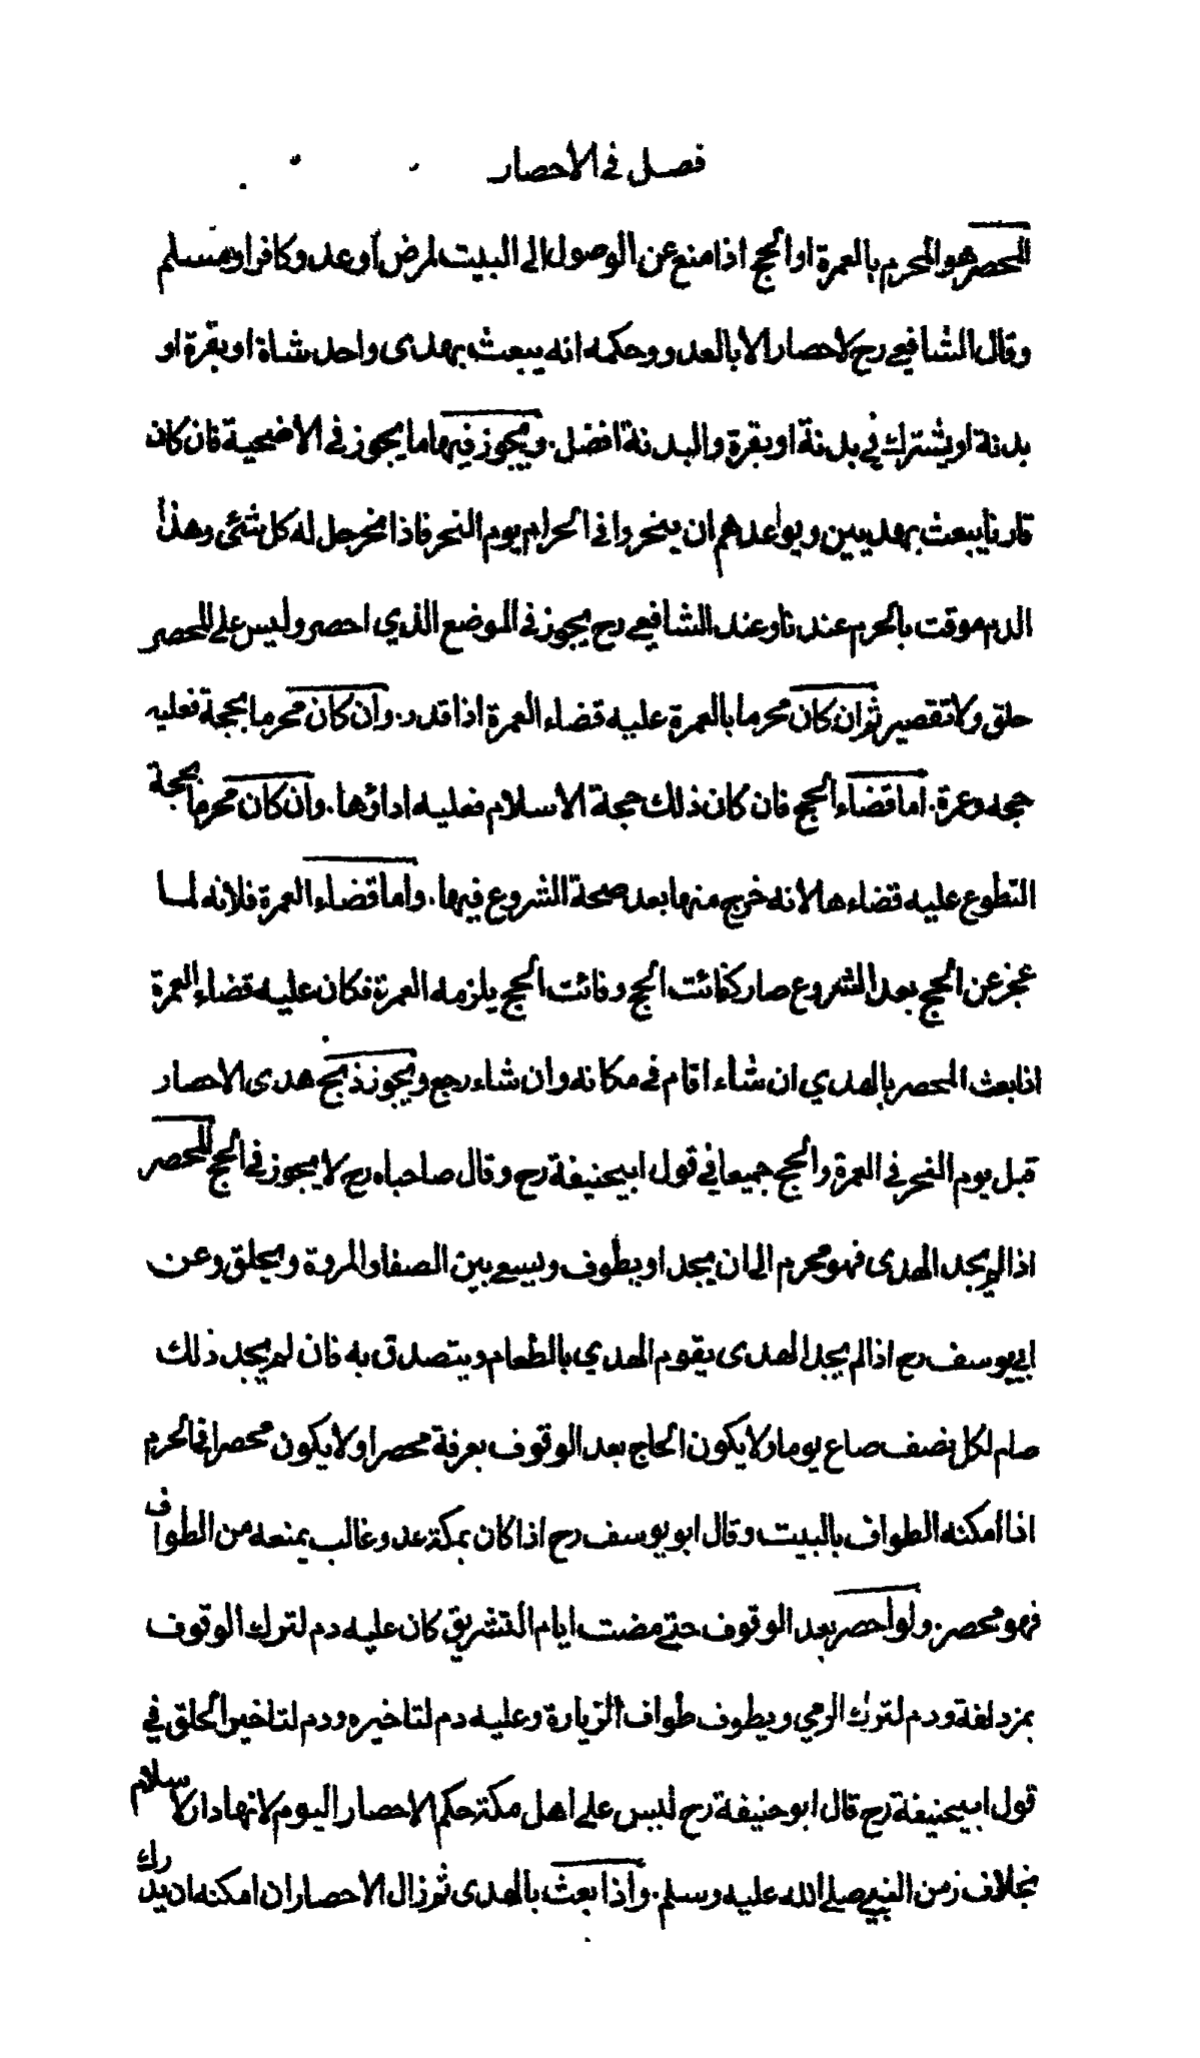 فصل في الاحصار
المحصر هو المحرم بالعمرة او الحج اذا منع عن الوصول الى البيت لمرض او عدو كافر او مسلم
وقال الشافعي رح لا حصار الا بالعدو وحكمه انه يبعث بهدى واحد شاة او بقرة او
بدنة او يشترك في بدنة او بقرة والبدنة افضل. ويجوز فيها ما يجوز في الاضحية فان كان
قارنا يبعث بهديين ويواعدهم ان ينحروا في الحرام يوم النحر فاذا نحر حل له كل شئى وهذا
الدم موقت بالحرم عندنا وعند الشافعي رح يجوز في الموضع الذي احصر وليس على المحصر
حلق ولا تقصير ثم ان كان محرما بالعمرة عليه قضاء العمرة اذا قدر. وان كان محرما بحجة فعليه
حجه وعمرة. اما قضاء الحج فان كان ذلك حجة الاسلام فعليه اداؤها. وان كان محرما بحجة
التطوع عليه قضاءها لانه خرج منها بعد صحة الشروع فيها. واما قضاء العمرة فلانه لما
عجز عن الحج بعد الشروع صار كفائت الحج وفائت الحج يلزمه العمرة فكان عليه قضاء العمرة
اذا بعث المحصر بالهدي ان شاء اقام في مكانه وان شاء رجع ويجوز ذبح هدى الاحصار
قبل يوم النحر في العمرة والحج جميعا في قول ابيحنيفة رح وقال صاحباه رح لا يجوز في الحج المحصر
اذا لم يجد الهدى فهو محرم الى ان يجد او يطوف ويسعى بين الصفا والمروة ويحلق وعن
ابي يوسف رح اذا لم يجد الهدى يقوم الهدي بالطعام ويتصدق به فان لم يجد ذلك
صام لكل نصف صاع يوما ولا يكون الحاج بعد الوقوف بعرفة محصرا ولا يكون محصرا في الحرم
اذا امكنه الطواف بالبيت وقال ابو يوسف رح اذا كان بمكة عدو غالب يمنعه من الطواف
فهو محصر. ولو احصر بعد الوقوف حتى مضت ايام التشريق كان عليه دم لترك الوقوف
بمزدلفة ودم لترك الرمي ويطوف طواف الزيارة وعليه دم لتاخيره ودم لتاخير الحلق في
قول ابيحنيفة رح قال ابو حنيفة رح ليس على اهل مكة حكم الاحصار اليوم لانها دار الاسلام
بخلاف زمن النبي صلى الله عليه وسلم. واذا بعث بالهدى ثم زال الاحصار ان امكنه ان يدرك